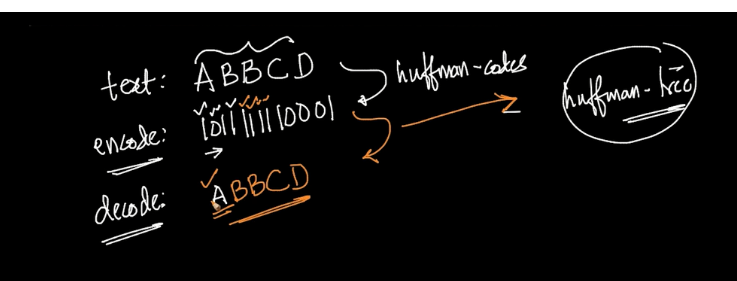 text: ABBCD
huffman-codes
huffman-tree
encode:
decode: ABBCD